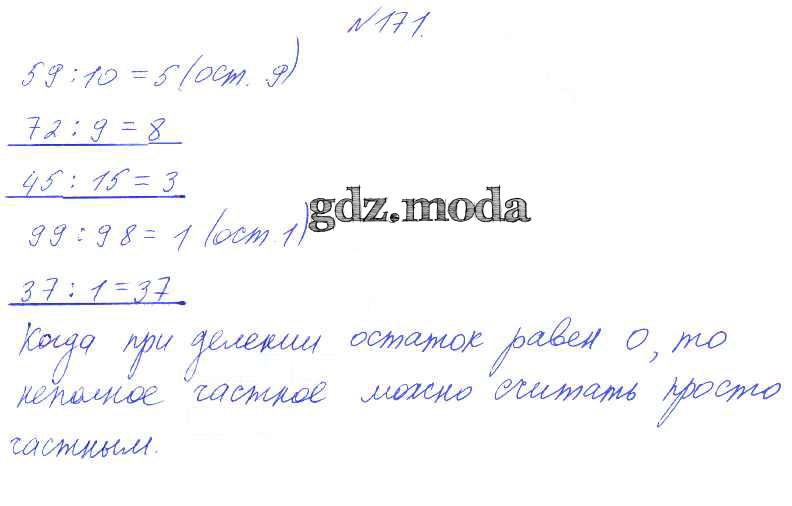 №171.
59 : 10 = 5 (ост. 9)
72 : 9 = 8
45 : 15 = 3
gdz.moda
99 : 98 = 1 (ост. 1)
37 : 1 = 37.
Когда при делении остаток равен 0, то
неполное частное можно считать просто
частным.